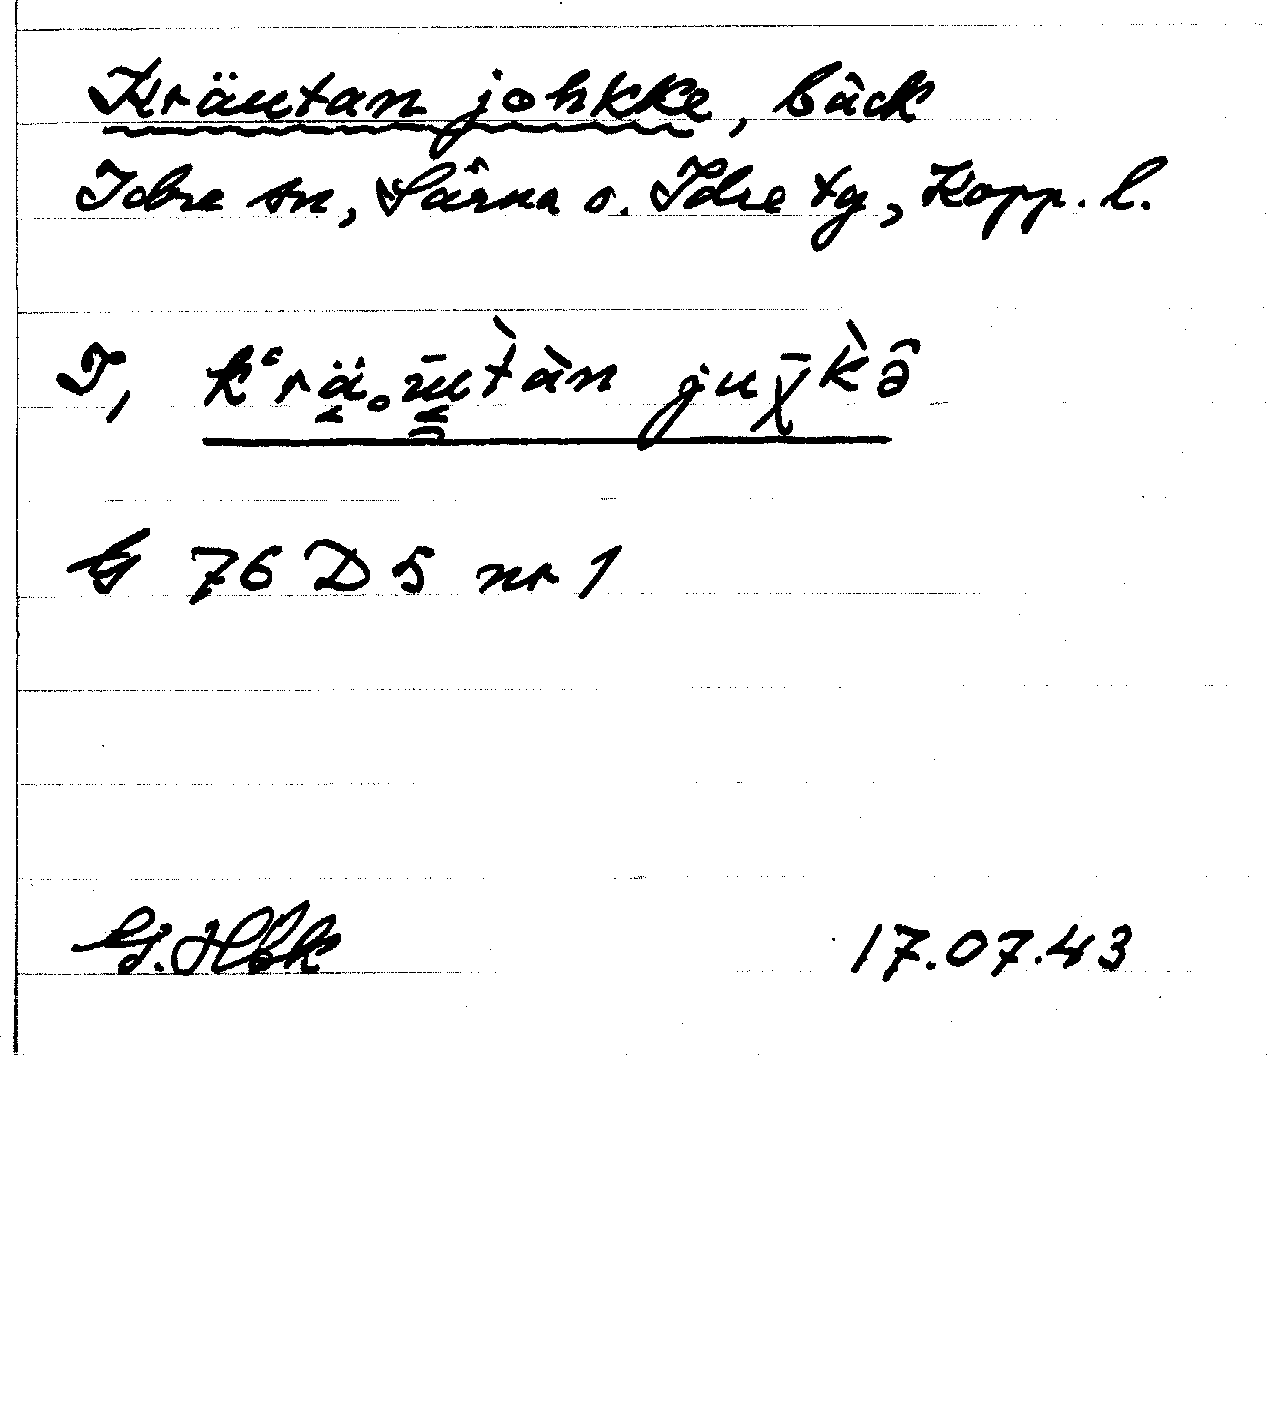 Kräutan johkke, bäck
Idre sn, Särna o. Idre tg, Kopp. l.
I, kʽrä̬.ūtàn juχ̄kə̂
G 76 D 5 nr 1
G. Hbk 17.07.43